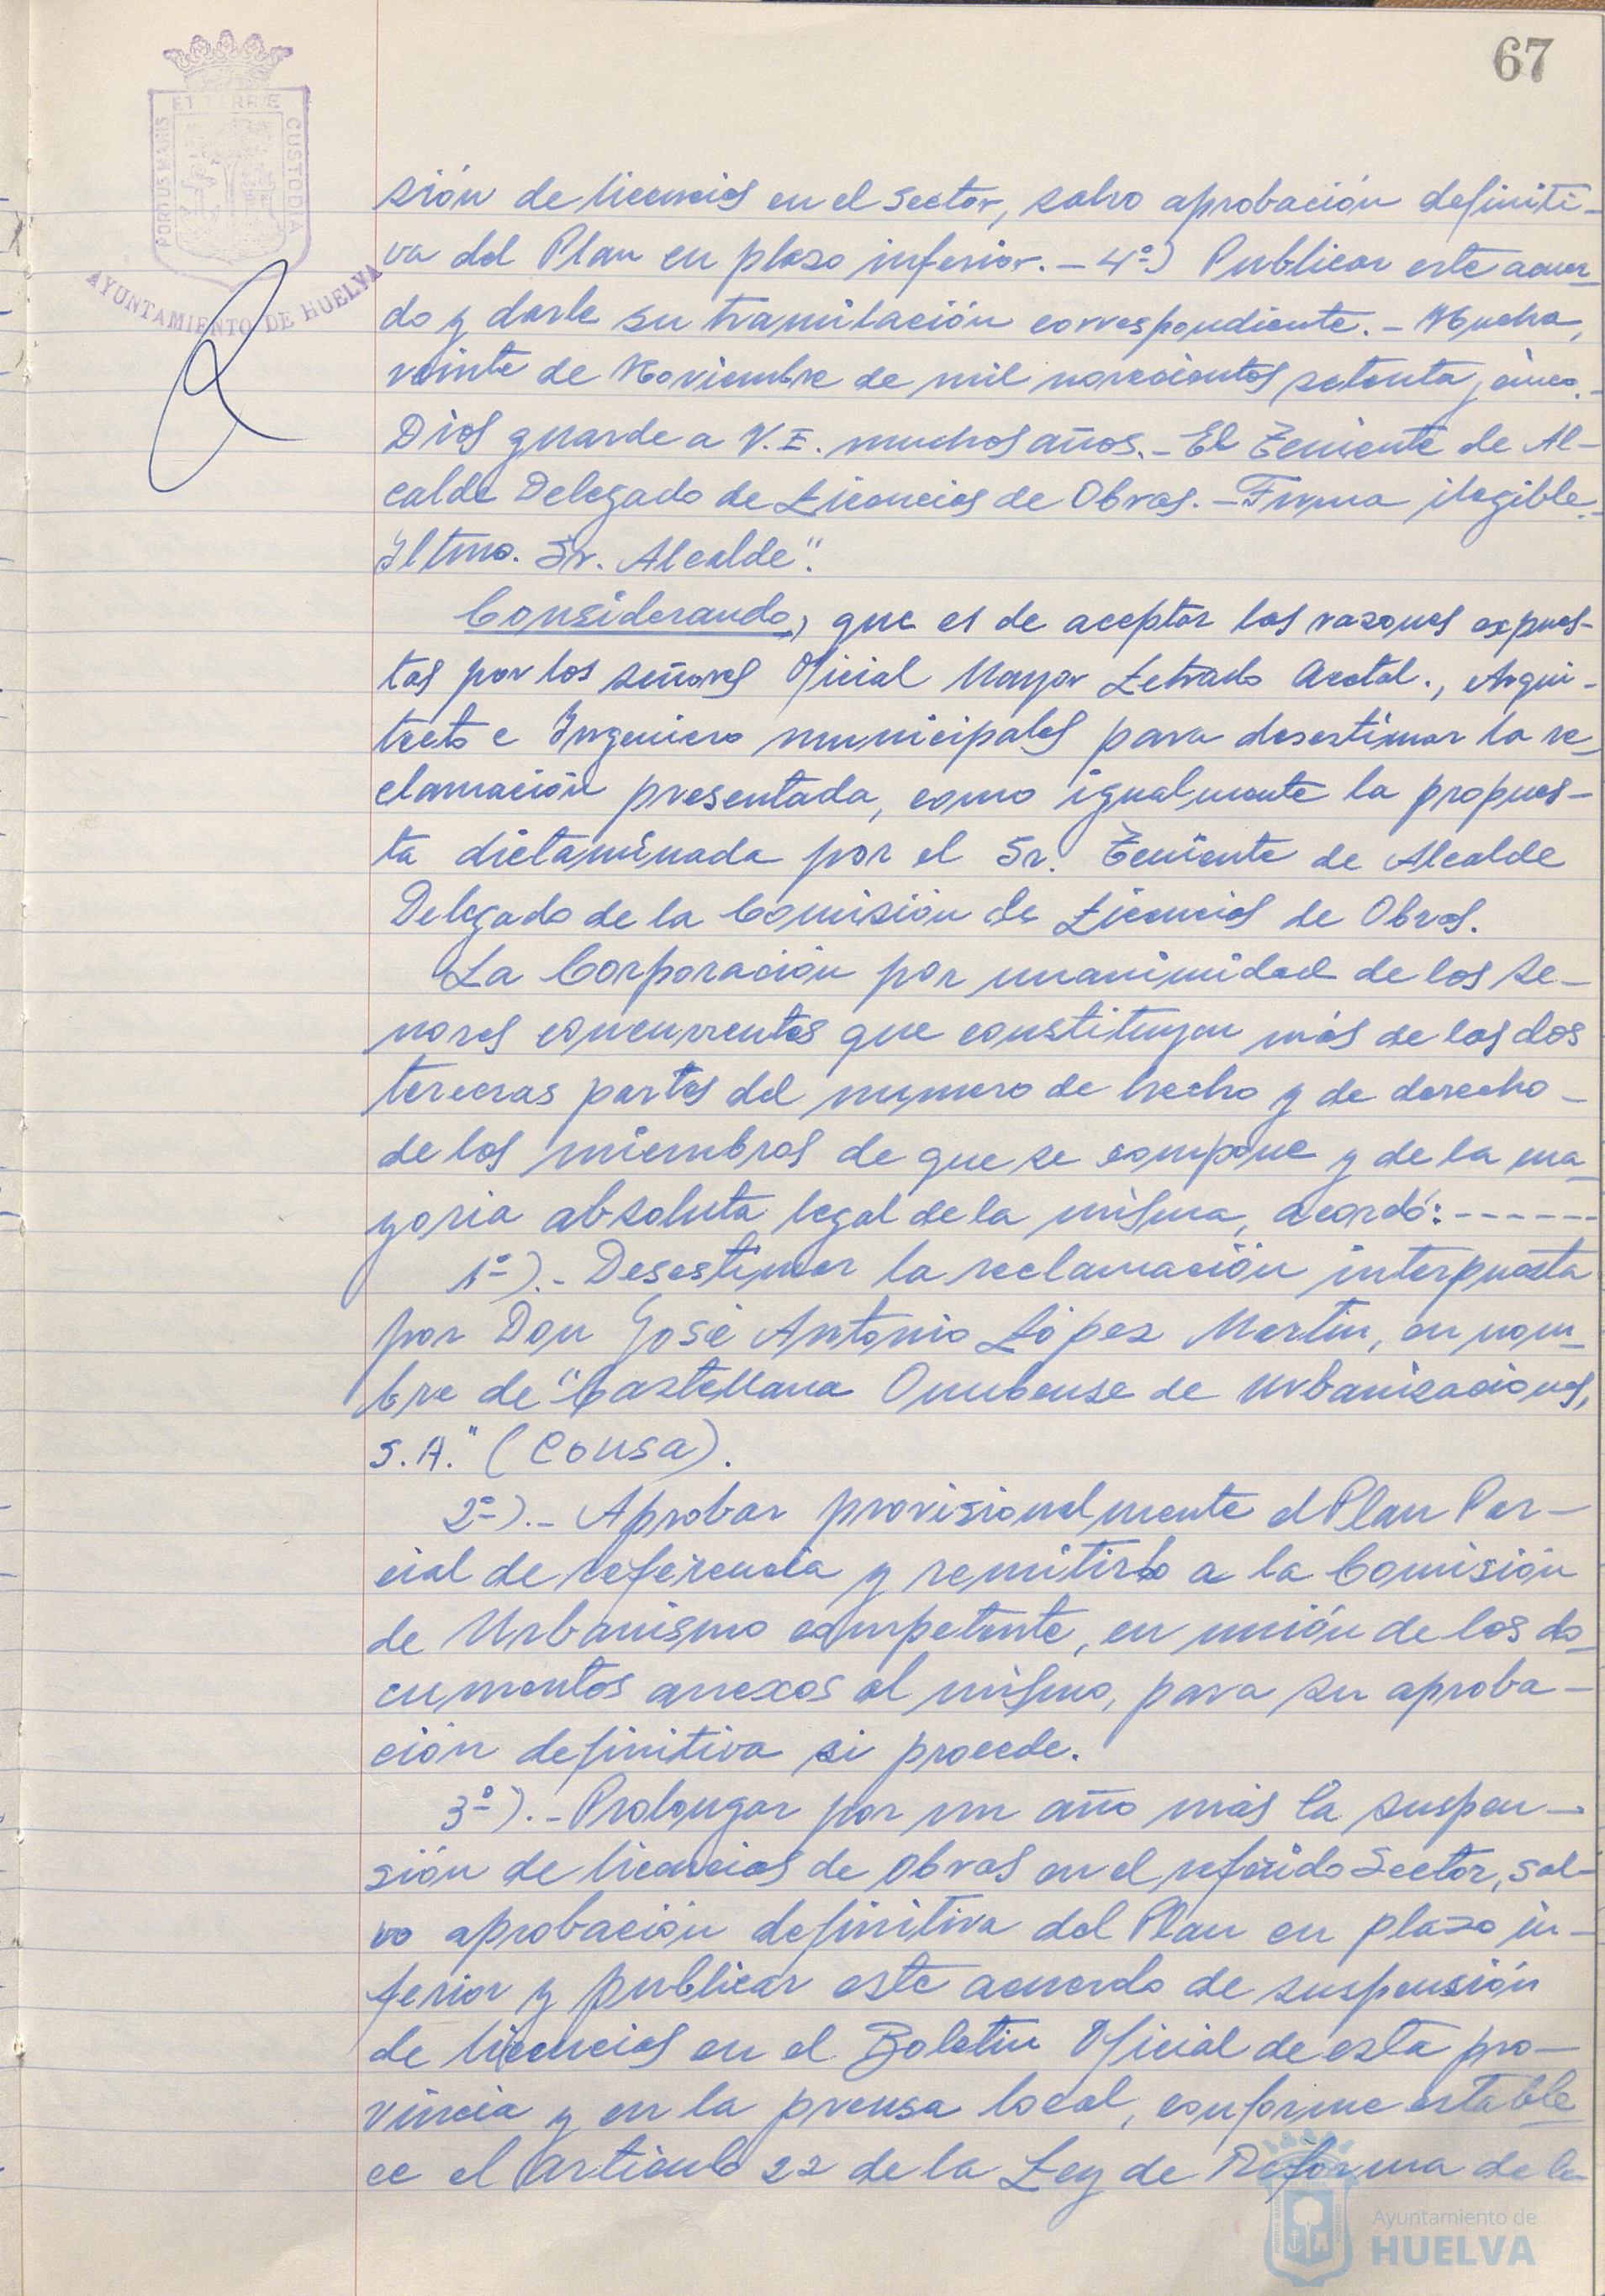 67
ET TERRÆ
PORTUS MARIS
CUSTODIA
AYUNTAMIENTO DE HUELVA
sión de licencias en el sector, salvo aprobación definiti-
va del Plan en plazo inferior.- 4º) Publicar este acuer-
do y darle su tramitación correspondiente.- Huelva,
veinte de Noviembre de mil novecientos setenta y cinco.-
Dios guarde a V.I. muchos años.- El Teniente de Al-
calde Delegado de Licencias de Obras.- Firma ilegible.-
Iltmo. Sr. Alcalde".
Considerando, que es de aceptar las razones expues-
tas por los señores Oficial Mayor Letrado Acctal., Arqui-
tecto e Ingeniero municipales para desestimar la re-
clamación presentada, como igualmente la propues-
ta dictaminada por el Sr. Teniente de Alcalde
Delegado de la Comisión de Licencias de Obras.
La Corporación por unanimidad de los se-
nores concurrentes que constituyen más de las dos
terceras partes del numero de hecho y de derecho -
de los miembros de que se compone y de la ma-
yoria absoluta legal de la misma, acordó:------
1º).- Desestimar la reclamación interpuesta
por Don José Antonio López Martin, en nom-
bre de "Castellana Onubense de Urbanizaciones,
S.A." (Cousa).
2º).- Aprobar provisionalmente el Plan Par-
cial de referencia y remitirlo a la Comisión
de Urbanismo competente, en unión de los do-
cumentos anexos al mismo, para su aproba-
ción definitiva si procede.
3º).- Prolongar por un año más la suspen-
sión de licencias de obras en el referido Sector, sal-
vo aprobación definitiva del Plan en plazo in-
ferior y publicar este acuerdo de suspensión
de licencias en el Boletin Oficial de esta pro-
vincia y en la prensa local, conforme estable-
ce el articulo 22 de la Ley de Reforma de la
Ayuntamiento de
HUELVA